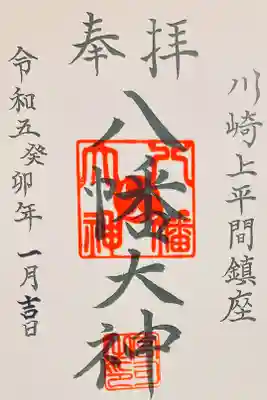 奉拝
川崎上平間鎮座
八幡大神
令和五癸卯年 一月吉日
八幡大神